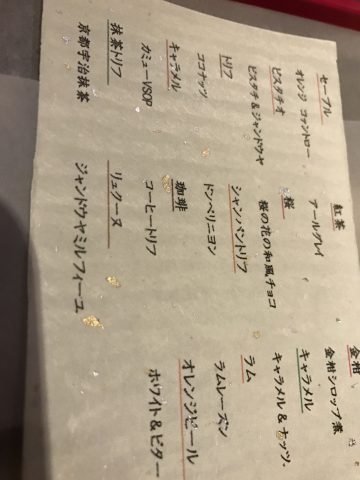 セーブル
オレンジ コアントロー
ピスタチオ
ピスタチ&ジャンドウヤ
トリフ
ココナッツ
キャラメル
カミューVSOP
抹茶トリフ
京都宇治抹茶
紅茶
アールグレイ
桜
桜の花の和風チョコ
シャンパントリフ
ドンペリニヨン
珈琲
コーヒートリフ
リュクーヌ
ジャンドウヤミルフィーユ
金柑
金柑シロップ煮
キャラメル
キャラメル&ナッツ.
ラム
ラムレーズン
オレンジピール
ホワイト&ビター